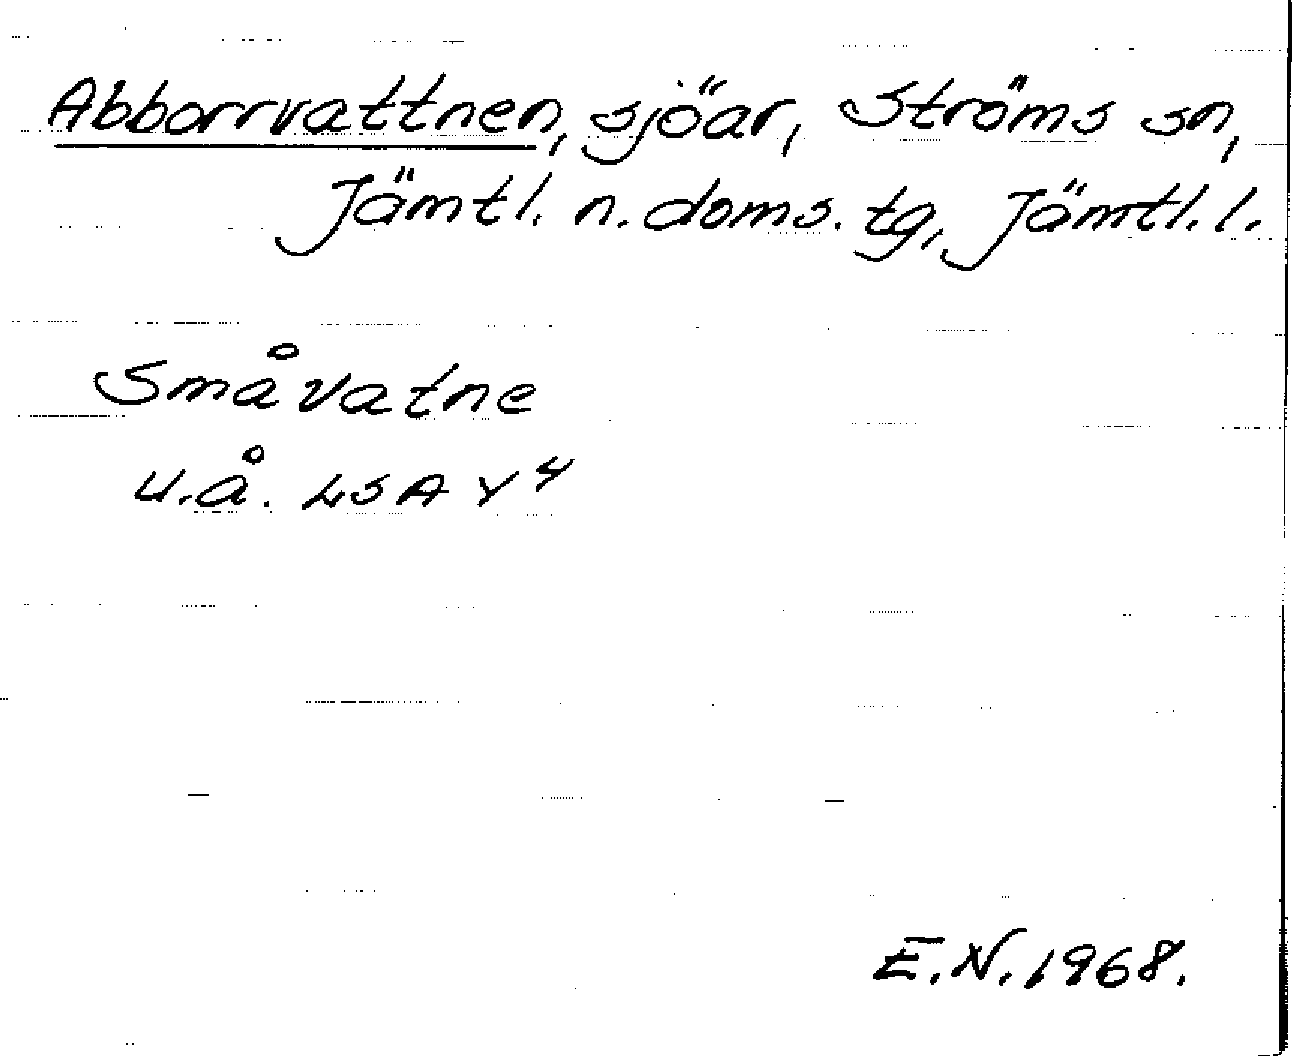 Abborrvattnen, sjöar, Ströms sn,
Jämtl. n. doms. tg, Jämtl. l.
Småvatne
u.å. LSA Y 4
E.N. 1968.